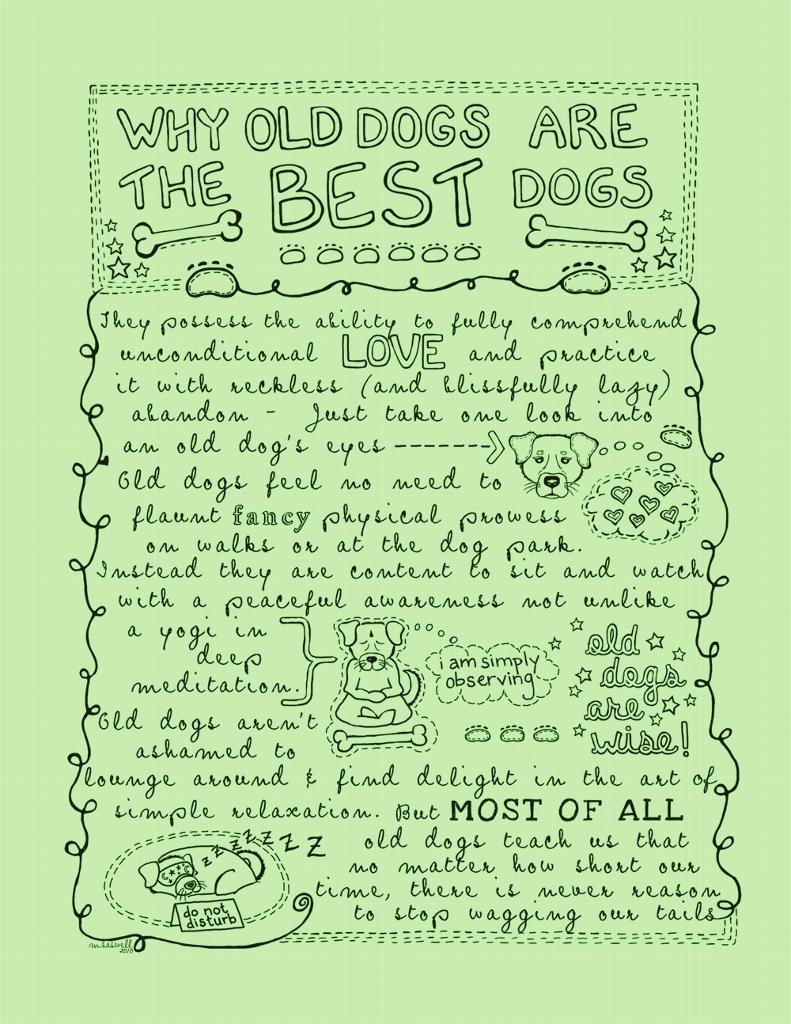 WHY OLD DOGS ARE
THE BEST DOGS
They possess the ability to fully comprehend
unconditional LOVE and practice
it with reckless (and blissfully lazy)
abandon - Just take one look into
an old dog's eyes
Old dogs feel no need to
flaunt fancy physical prowess
on walks or at the dog park.
Instead they are content to sit and watch
with a peaceful awareness not unlike
a yogi in
deep
meditation.
i am simply
observing
old
dogs
are
wise!
Old dogs aren't
ashamed to
lounge around & find delight in the art of
simple relaxation. But MOST OF ALL
old dogs teach us that
no matter how short our
time, there is never reason
to stop wagging our tails
z z z z z z Z Z
do not
disturb
2010